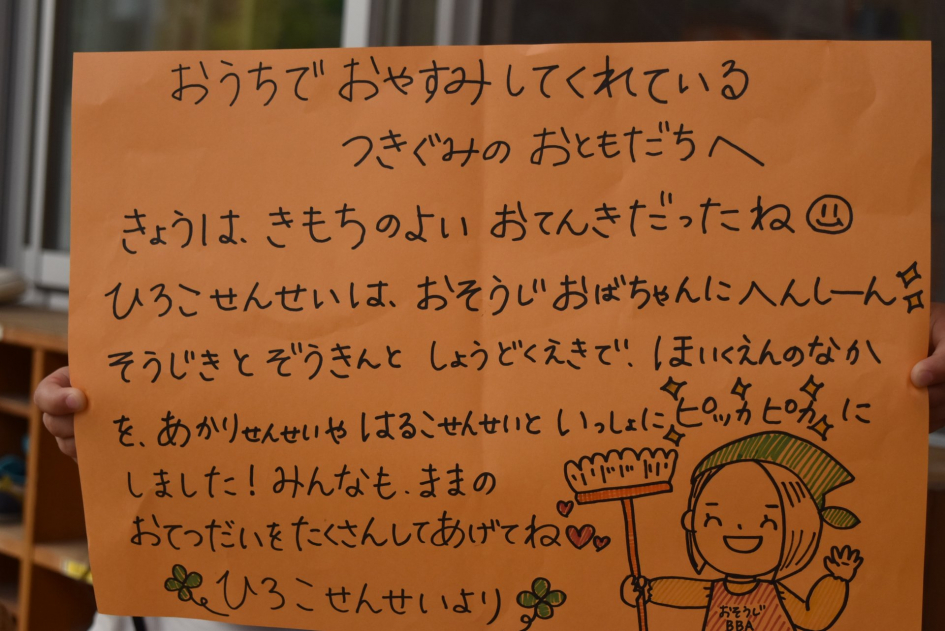 おうちで おやすみしてくれている
つきぐみの おともだちへ
きょうは、きもちのよい おてんきだったね
ひろこせんせいは、おそうじおばちゃんにへんしーん
そうじきと ぞうきんと しょうどくえきで、ほいくえんのなか
を、あかりせんせいや はるこせんせいと いっしょに ピッカピカに
しました！みんなも、ままの
おてつだいをたくさんしてあげてね
ひろこせんせいより
おそうじ
BBA